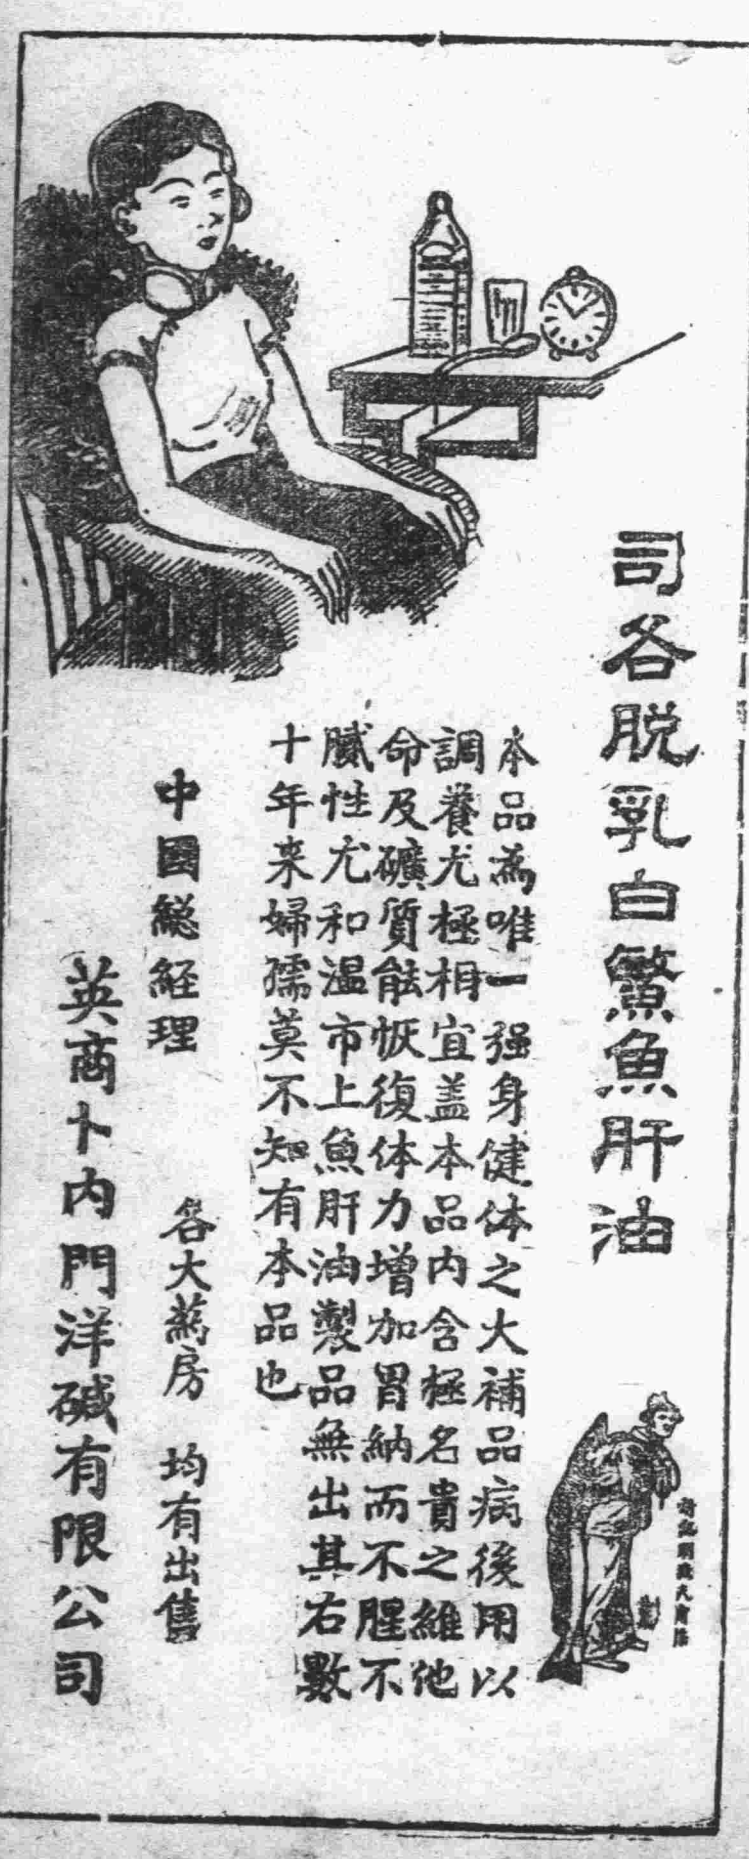 司各脱乳白鱉魚肝油
本品為唯一强身健体之大補品病後用以
調養尤極相宜盖本品内含極名貴之維他
命及礦質能恢復体力增加胃納而不腥不
膩性尤和温市上魚肝油製品無出其右數
十年来婦孺莫不知有本品也
中國總経理
各大葯房 均有出售
英商卜内門洋碱有限公司